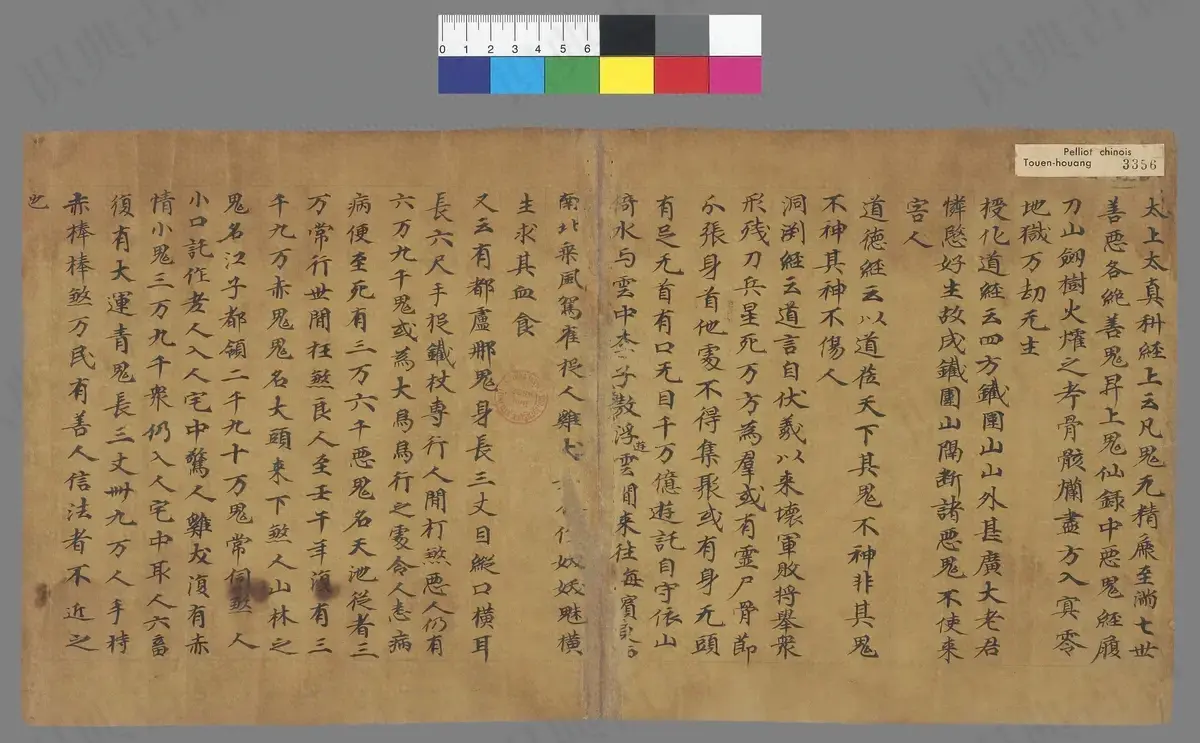 Pelliot chinois
Touen-houang 3356
0 1 2 3 4 5 6
太上太真科經上云凡鬼无精廉至滿七世
善惡各絕善鬼昇上鬼仙錄中惡鬼經履
刀山劒樹火燿之考骨骸爛盡方入冥零
地獄万劫无生
授化道經云四方鐵圍山山外甚廣大老君
憐愍好生故成鐵圍山隔斷諸惡鬼不使来
害人
道德經云以道莅天下其鬼不神非其鬼
不神其神不傷人
洞渕經云道言自伏羲以来壞軍敗將舉衆
形殘刀兵星死万万為羣或有靈尸骨節
分張身首他處不得集聚或有身无頭
有足无首有口无目千万億遊託自守依山
倚水与雲中李子敖浮遊雲間来往海賓
南北乗風駕雀捉人雞犬 魅橫
生求其血食
又云有都盧那鬼身長三丈目縱口橫耳
長六尺手捉鐵杖專行人間打煞惡人仍有
六万九千鬼或為大鳥鳥行之處令人恚病
病便至死有三万六千惡鬼名天池從者三
万常行世間枉煞良人至壬午年復有三
千九万赤鬼鬼名大頭来下煞人山林之
鬼名江子都領二千九十万鬼常伺煞人
小口託作老人入人宅中驚人雞犬復有赤
情小鬼三万九千衆仍入人宅中取人六畜
復有大運青鬼長三丈卅九万人手持
赤棒棒煞万民有善人信法者不近之
也